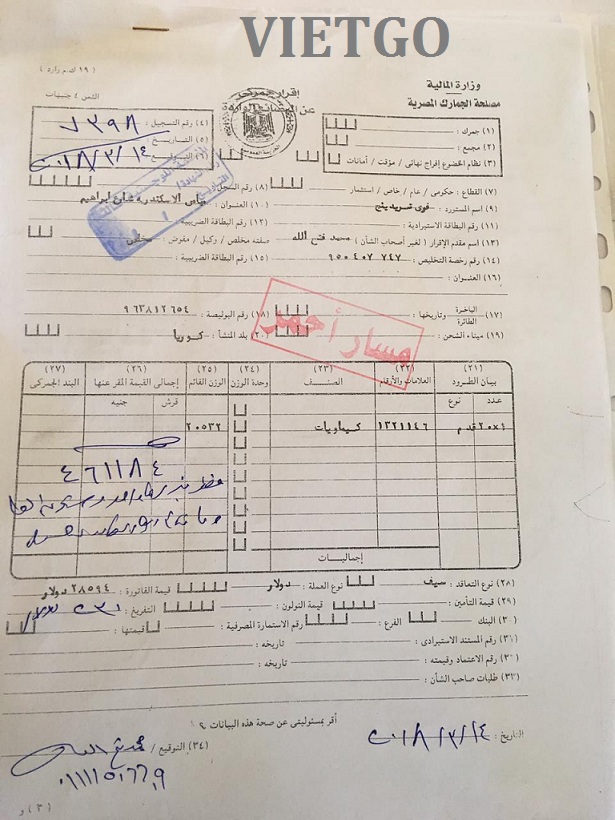 VIETGO
( ١٩ ك.م وارد )
الثمن ٤ جنيهات
وزارة المالية
مصلحة الجمارك المصرية
إقرار جمركى
عن البضائع الواردة
(١) جمرك :
(٢) مجمع :
(٣) نظام الخضوع إفراج نهائى / مؤقت / أمانات
(٤) رقم التسجيل : ١٣٩٨
(٥) التاريخ
(٦) ٢٠١٨/٣/١٤
(٧) القطاع : حكومى / عام / خاص / استثمار
(٨) رقم السجل
(٩) اسم المستورد : فوى تريدينج
(١٠) العنوان : الاسكندرية شارع ابراهيم
(١١) رقم البطاقة الاستيرادية :
(١٢) رقم البطاقة الضريبية
(١٣) اسم مقدم الإقرار ( لغير أصحاب الشأن ) محمد فتح الله
صفته مخلص / وكيل / مفوض : مخلص
(١٤) رقم رخصة التخليص : ٧٤٧
(١٥) رقم البطاقة الضريبية :
(١٦) العنوان :
(١٧) الباخرة / الطائرة وتاريخها :
(١٨) رقم البوليصة : ٩٦٣٨١٢٦٥٤
(١٩) ميناء الشحن :
(٢٠) بلد المنشأ : كوريا
مسار أحمر
(٢١) بيان الطرود
عدد نوع
(٢٢) العلامات والأرقام
(٢٣) الصنف
(٢٤) وحدة الوزن
(٢٥) الوزن القائم
(٢٦) إجمالى القيمة المقر عنها
قرش جنيه
(٢٧) البند الجمركى
١×٢٠ قدم
١٣٢١١٤٦
كيماويات
٢٠٥٣٢
٤٦١١٨٤
إجماليات
(٢٨) نوع التعاقد : سيف نوع العملة : دولار قيمة الفاتورة : ٢٨٥٩٤ دولار
(٢٩) قيمة التأمين : قيمة النولون : التفريغ :
(٣٠) البنك الفرع : رقم الاستمارة المصرفية : قيمتها :
(٣١) رقم المستند الاستيرادى : تاريخه :
(٣٢) رقم الاعتماد وقيمته : تاريخه :
(٣٣) طلبات صاحب الشأن :
أقر بمسئوليتى عن صحة هذه البيانات
التاريخ : ٢٠١٨/٣/١٤
(٣٤) التوقيع /